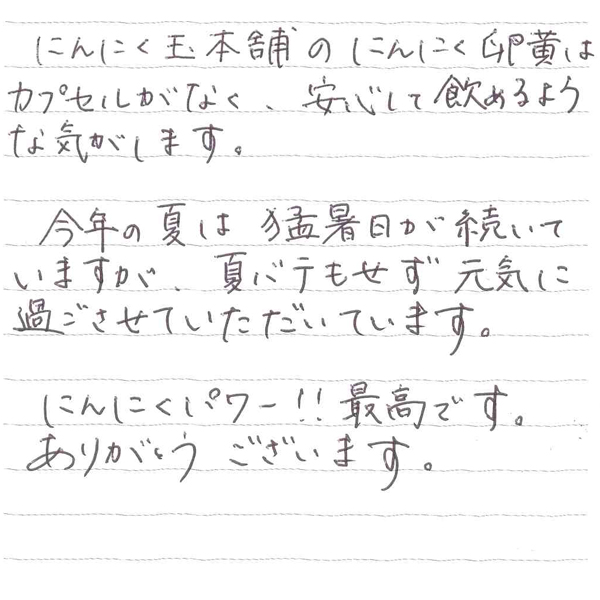 にんにく玉本舗のにんにく卵黄は
カプセルがなく、安心して飲めるよう
な気がします。
今年の夏は猛暑日が続いて
いますが、夏バテもせず元気に
過ごさせていただいています。
にんにくパワー!!最高です。
ありがとうございます。